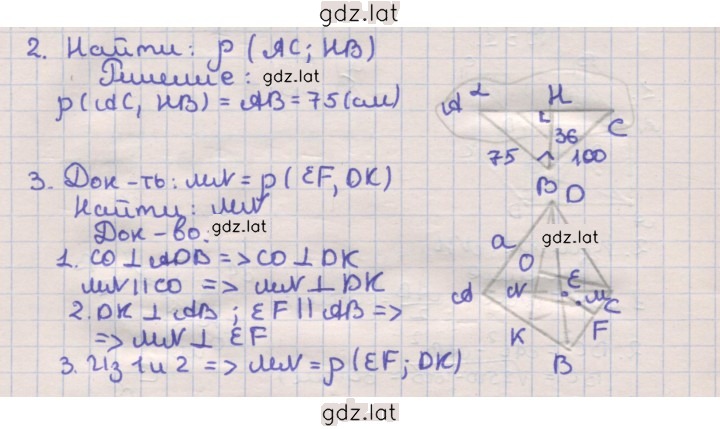 gdz.lat
2. Найти: ρ (AC; HB)
Решение: gdz.lat
ρ(AC, HB) = AB = 75 (см)
A 2 H C
36
75 100
B
3. Док-ть: MN = ρ (EF, DK)
Найти: MN
Док-во: gdz.lat
1. CO ⊥ ADB => CO ⊥ DK
MN || CO => MN ⊥ DK
2. DK ⊥ AB ; EF || AB =>
=> MN ⊥ EF
3. Из 1 и 2 => MN = ρ (EF; DK)
D
a gdz.lat
O E
A N M C
K F
B
gdz.lat